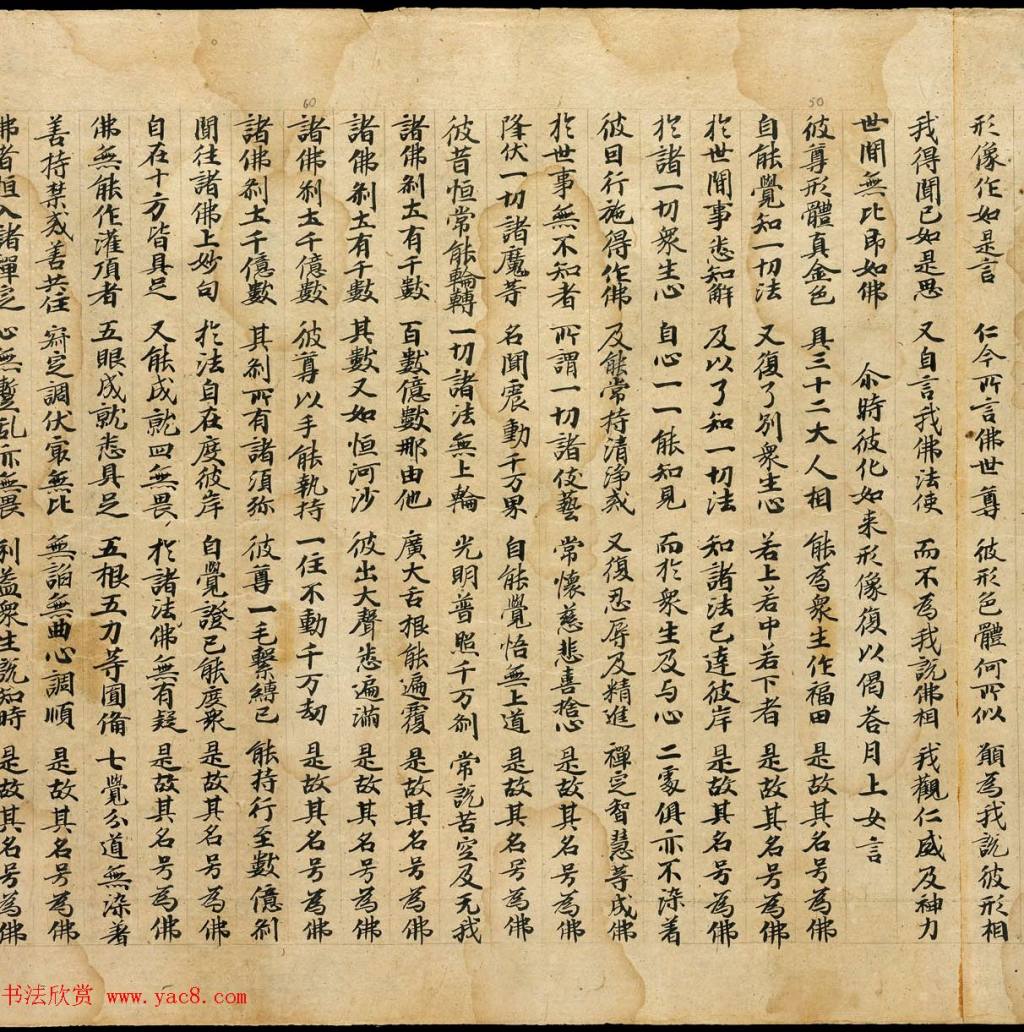 形像作如是言 仁今所言佛世尊 彼形色體何所似 願為我說彼形相
我得聞已如是思 又自言我佛法使 而不為我說佛相 我觀仁威及神力
世間無比即如佛 尒時彼化如来形像復以偈荅月上女言
彼尊形體真金色 具三十二大人相 能為衆生作福田 是故其名号為佛
自能覺知一切法 又復了別衆生心 若上若中若下者 是故其名号為佛
於世間事悉知解 及以了知一切法 知諸法已達彼岸 是故其名号為佛
於諸一切衆生心 自心一一能知見 而於衆生及与心 二豪俱亦不染着
彼因行施得作佛 及能常持清淨戒 又復忍辱及精進 禪定智慧等成佛
於世事無不知者 所謂一切諸伎藝 常懷慈悲喜捨心 是故其名号為佛
降伏一切諸魔等 名聞震動千万界 自能覺悟無上道 是故其名号為佛
彼昔恒常能輪轉 一切諸法無上輪 光明普照千万刹 常說苦空及无我
諸佛刹土有千數 百數億數那由他 廣大舌根能遍覆 是故其名号為佛
諸佛刹土有千數 其數又如恒河沙 彼出大聲悉遍滿 是故其名号為佛
諸佛刹土千億數 彼尊以手能執持 一住不動千万劫 是故其名号為佛
諸佛刹土千億數 其刹所有諸須弥 彼尊一毛繫縛已 能持行至數億刹
聞往諸佛上妙句 於法自在度彼岸 自覺證已能度衆 是故其名号為佛
自在十方皆具足 又能成就四無畏 於諸法佛無有疑 是故其名号為佛
佛無能作灌頂者 五眼成就悉具足 五根五力等圓俻 七覺分道無染著
善持禁戒善共住 齋定調伏寂無比 無諂無曲心調順 是故其名号為佛
佛者恒入諸禪定 心無蹔乱亦無畏 利益衆生說知時 是故其名号為佛
50
60
书法欣赏 www.yac8.com